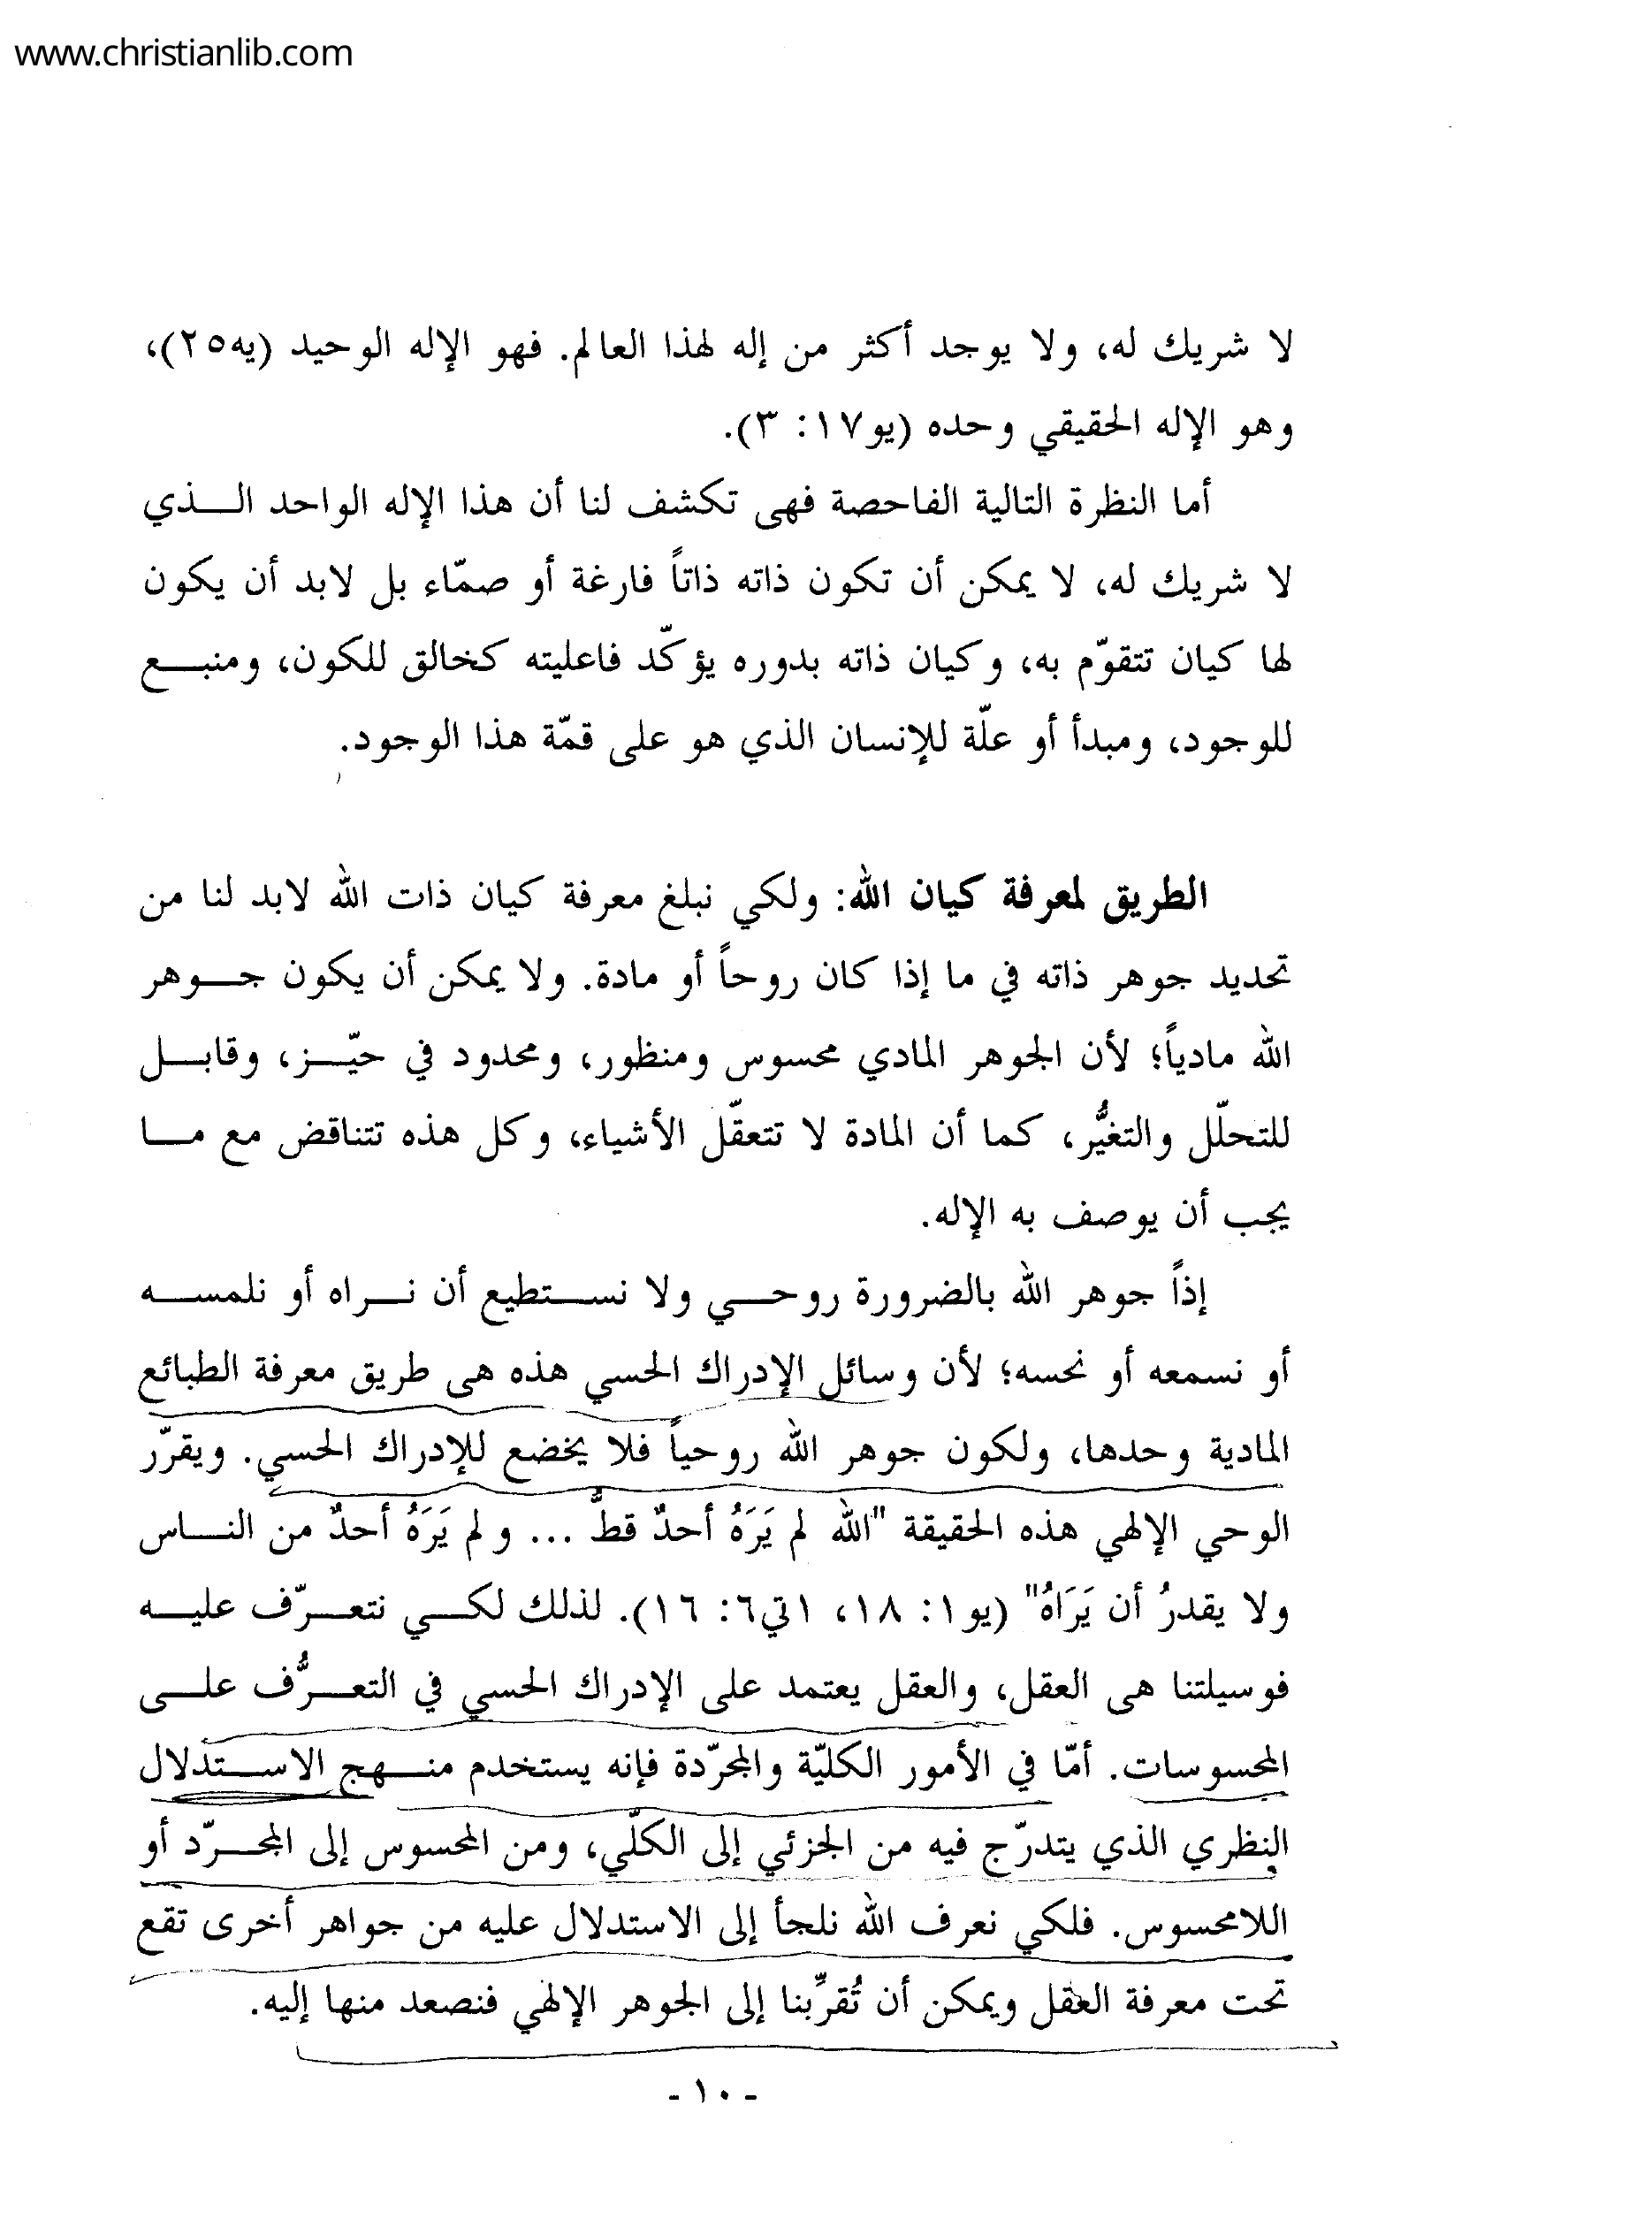 www.christianlib.com
لا شريك له، ولا يوجد أكثر من إله لهذا العالم. فهو الإله الوحيد (يه٢٥)،
وهو الإله الحقيقي وحده (يو١٧: ٣).
أما النظرة التالية الفاحصة فهى تكشف لنا أن هذا الإله الواحد الـذي
لا شريك له، لا يمكن أن تكون ذاته ذاتاً فارغة أو صمّاء بل لابد أن يكون
لها كيان تتقوّم به، وكيان ذاته بدوره يؤكّد فاعليته كخالق للكون، ومنبـع
للوجود، ومبدأ أو علّة للإنسان الذي هو على قمّة هذا الوجود.
الطريق لمعرفة كيان الله: ولكي نبلغ معرفة كيان ذات الله لابد لنا من
تحديد جوهر ذاته في ما إذا كان روحاً أو مادة. ولا يمكن أن يكون جـوهر
الله مادياً؛ لأن الجوهر المادي محسوس ومنظور، ومحدود في حيّـز، وقابـل
للتحلّل والتغيُّر، كما أن المادة لا تتعقّل الأشياء، وكل هذه تتناقض مع مـا
يجب أن يوصف به الإله.
إذاً جوهر الله بالضرورة روحـي ولا نسـتطيع أن نـراه أو نلمسـه
أو نسمعه أو نحسه؛ لأن وسائل الإدراك الحسي هذه هى طريق معرفة الطبائع
المادية وحدها، ولكون جوهر الله روحياً فلا يخضع للإدراك الحسي. ويقرّر
الوحي الإلهي هذه الحقيقة "الله لم يَرَهُ أحدٌ قطُّ ... ولم يَرَهُ أحدٌ من النـاس
ولا يقدرُ أن يَرَاهُ" (يو١: ١٨، ١تي٦: ١٦). لذلك لكـي نتعـرّف عليـه
فوسيلتنا هى العقل، والعقل يعتمد على الإدراك الحسي في التعـرُّف علـى
المحسوسات. أمّا في الأمور الكليّة والمجرّدة فإنه يستخدم منـهج الاسـتدلال
النظري الذي يتدرّج فيه من الجزئي إلى الكلّي، ومن المحسوس إلى المجـرّد أو
اللامحسوس. فلكي نعرف الله نلجأ إلى الاستدلال عليه من جواهر أخرى تقع
تحت معرفة العقل ويمكن أن تُقرِّبنا إلى الجوهر الإلهي فنصعد منها إليه.
- ١٠ -